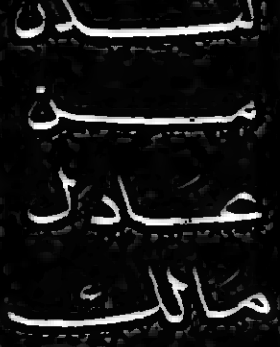 لندن
من
عادل
مالك